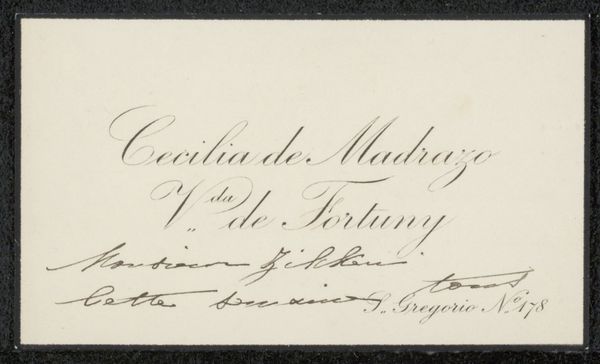 Cecilia de Madrazo
V.da de Fortuny
Monsieur Zilken
Cette semaine tous
S. Gregorio No. 178